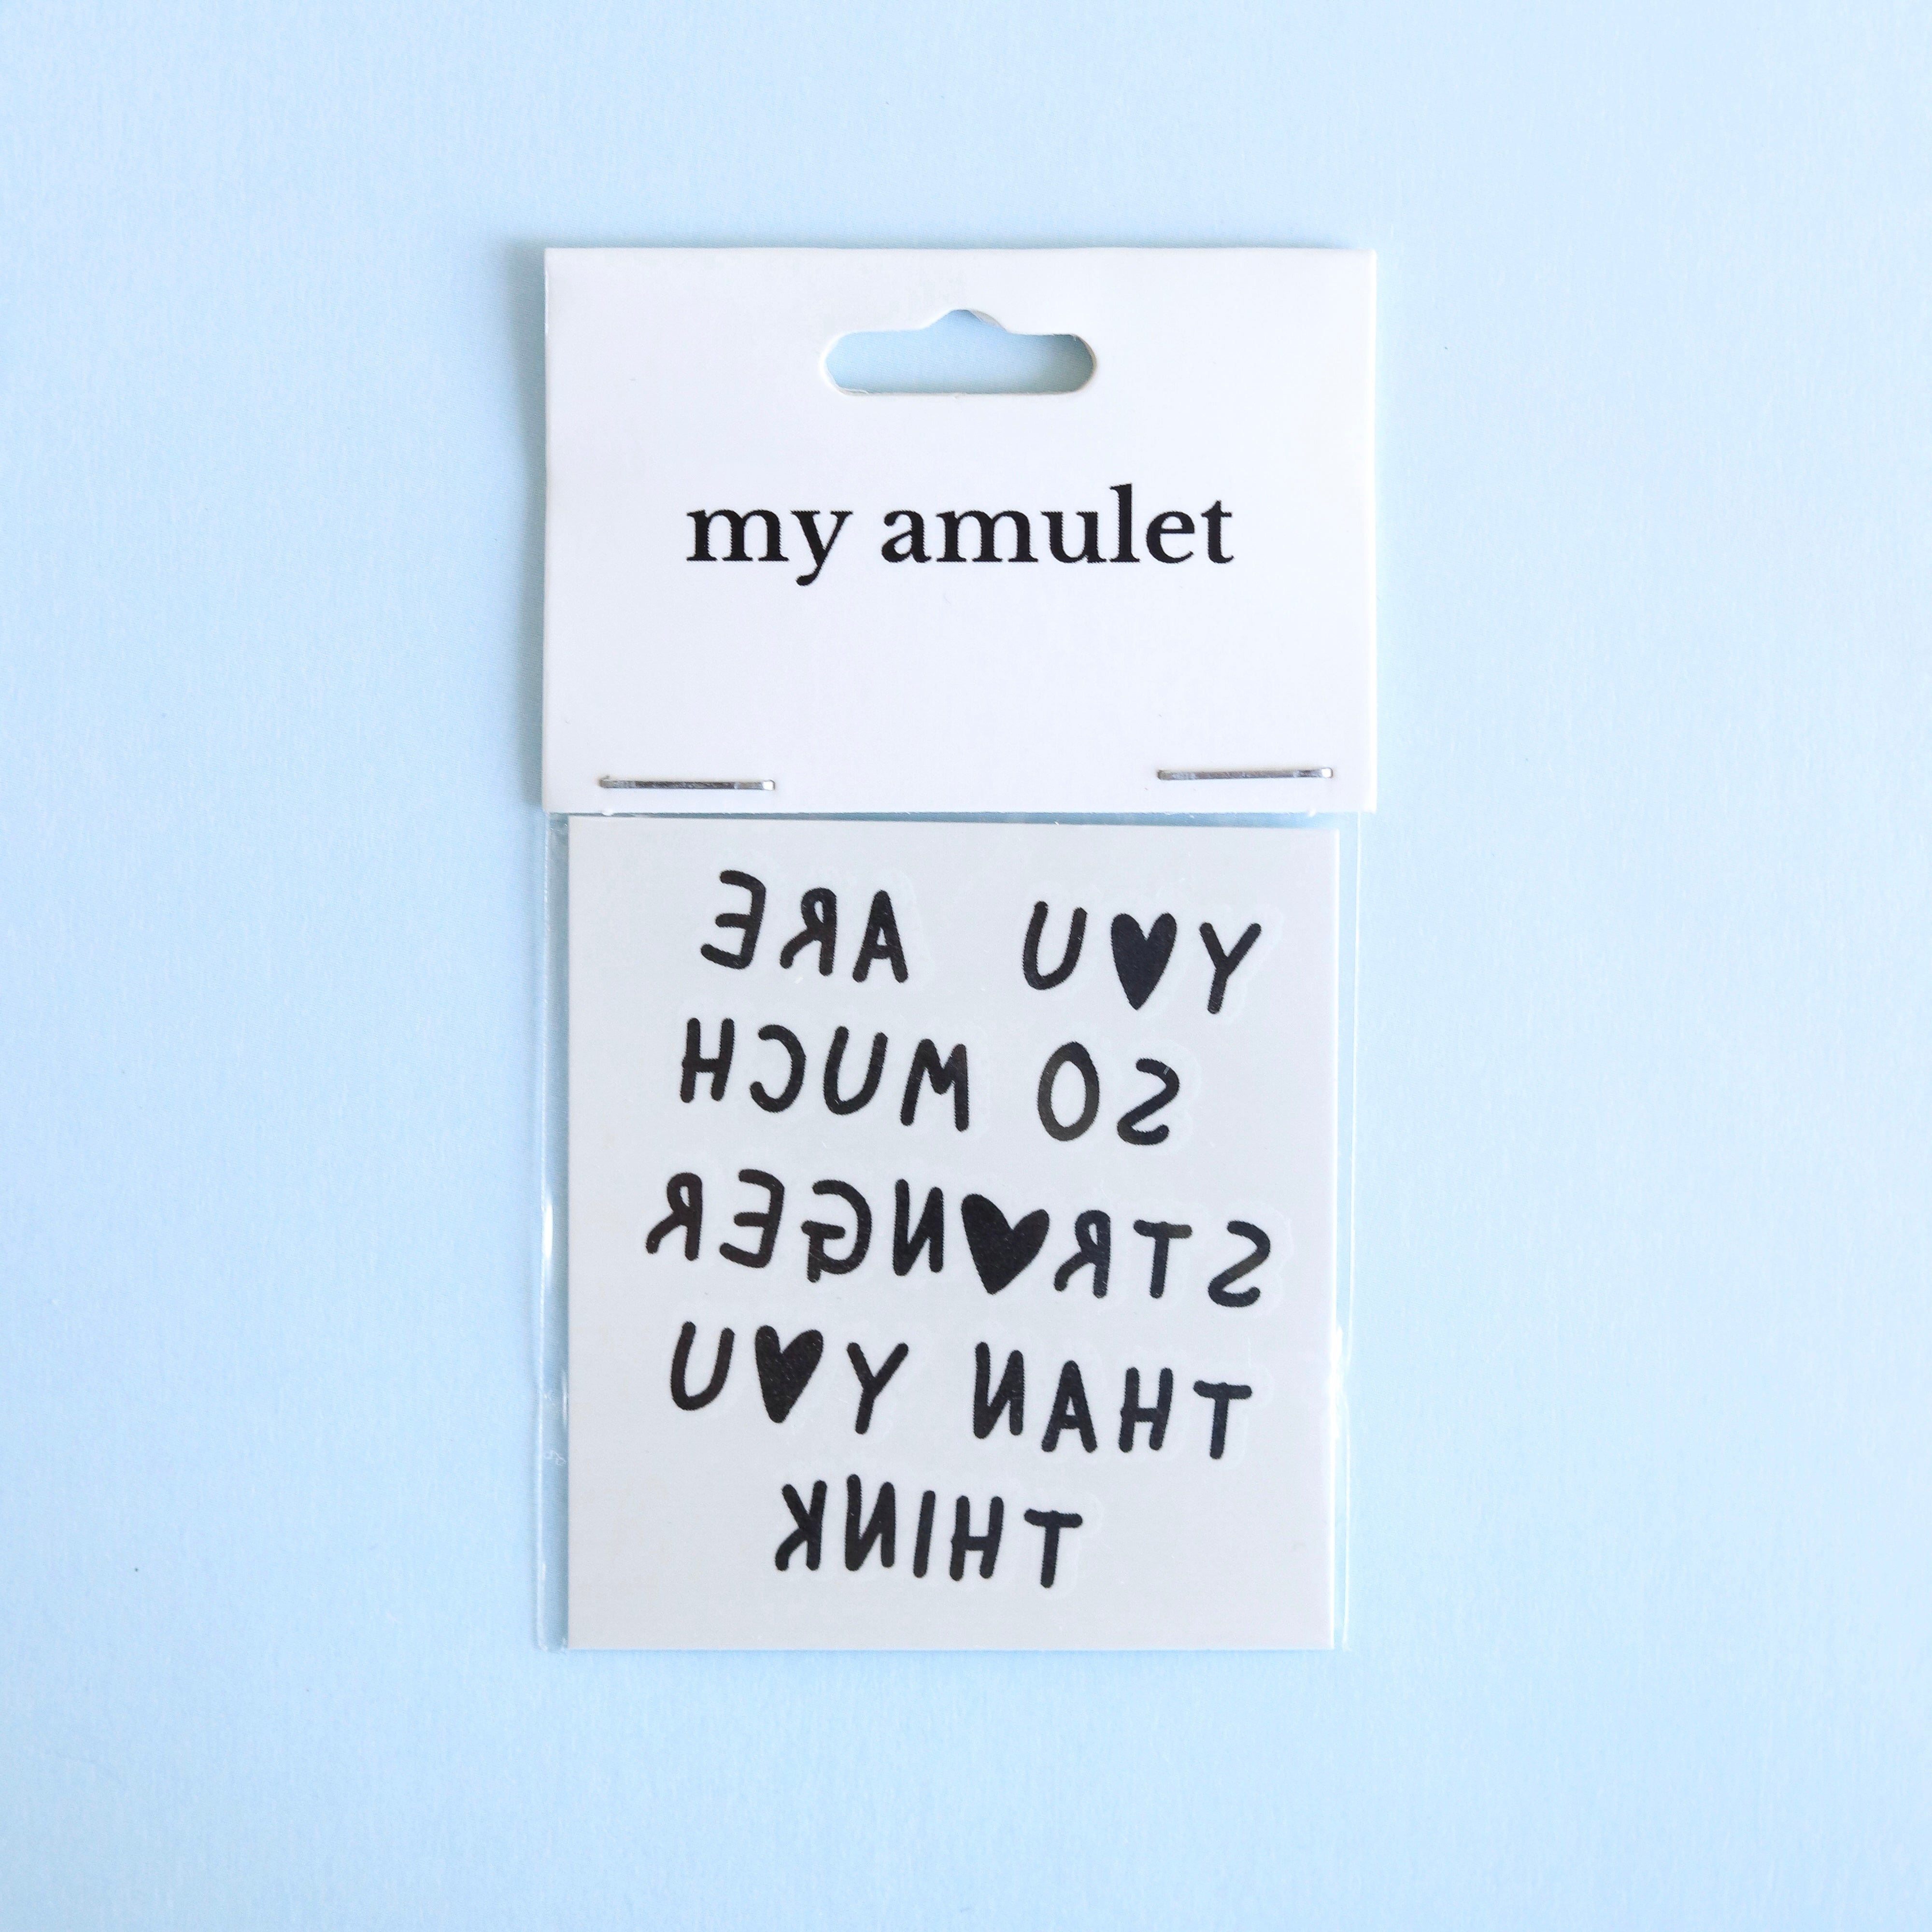 my amulet
Y♥U ARE
SO MUCH
STR♥NGER
THAN Y♥U
THINK